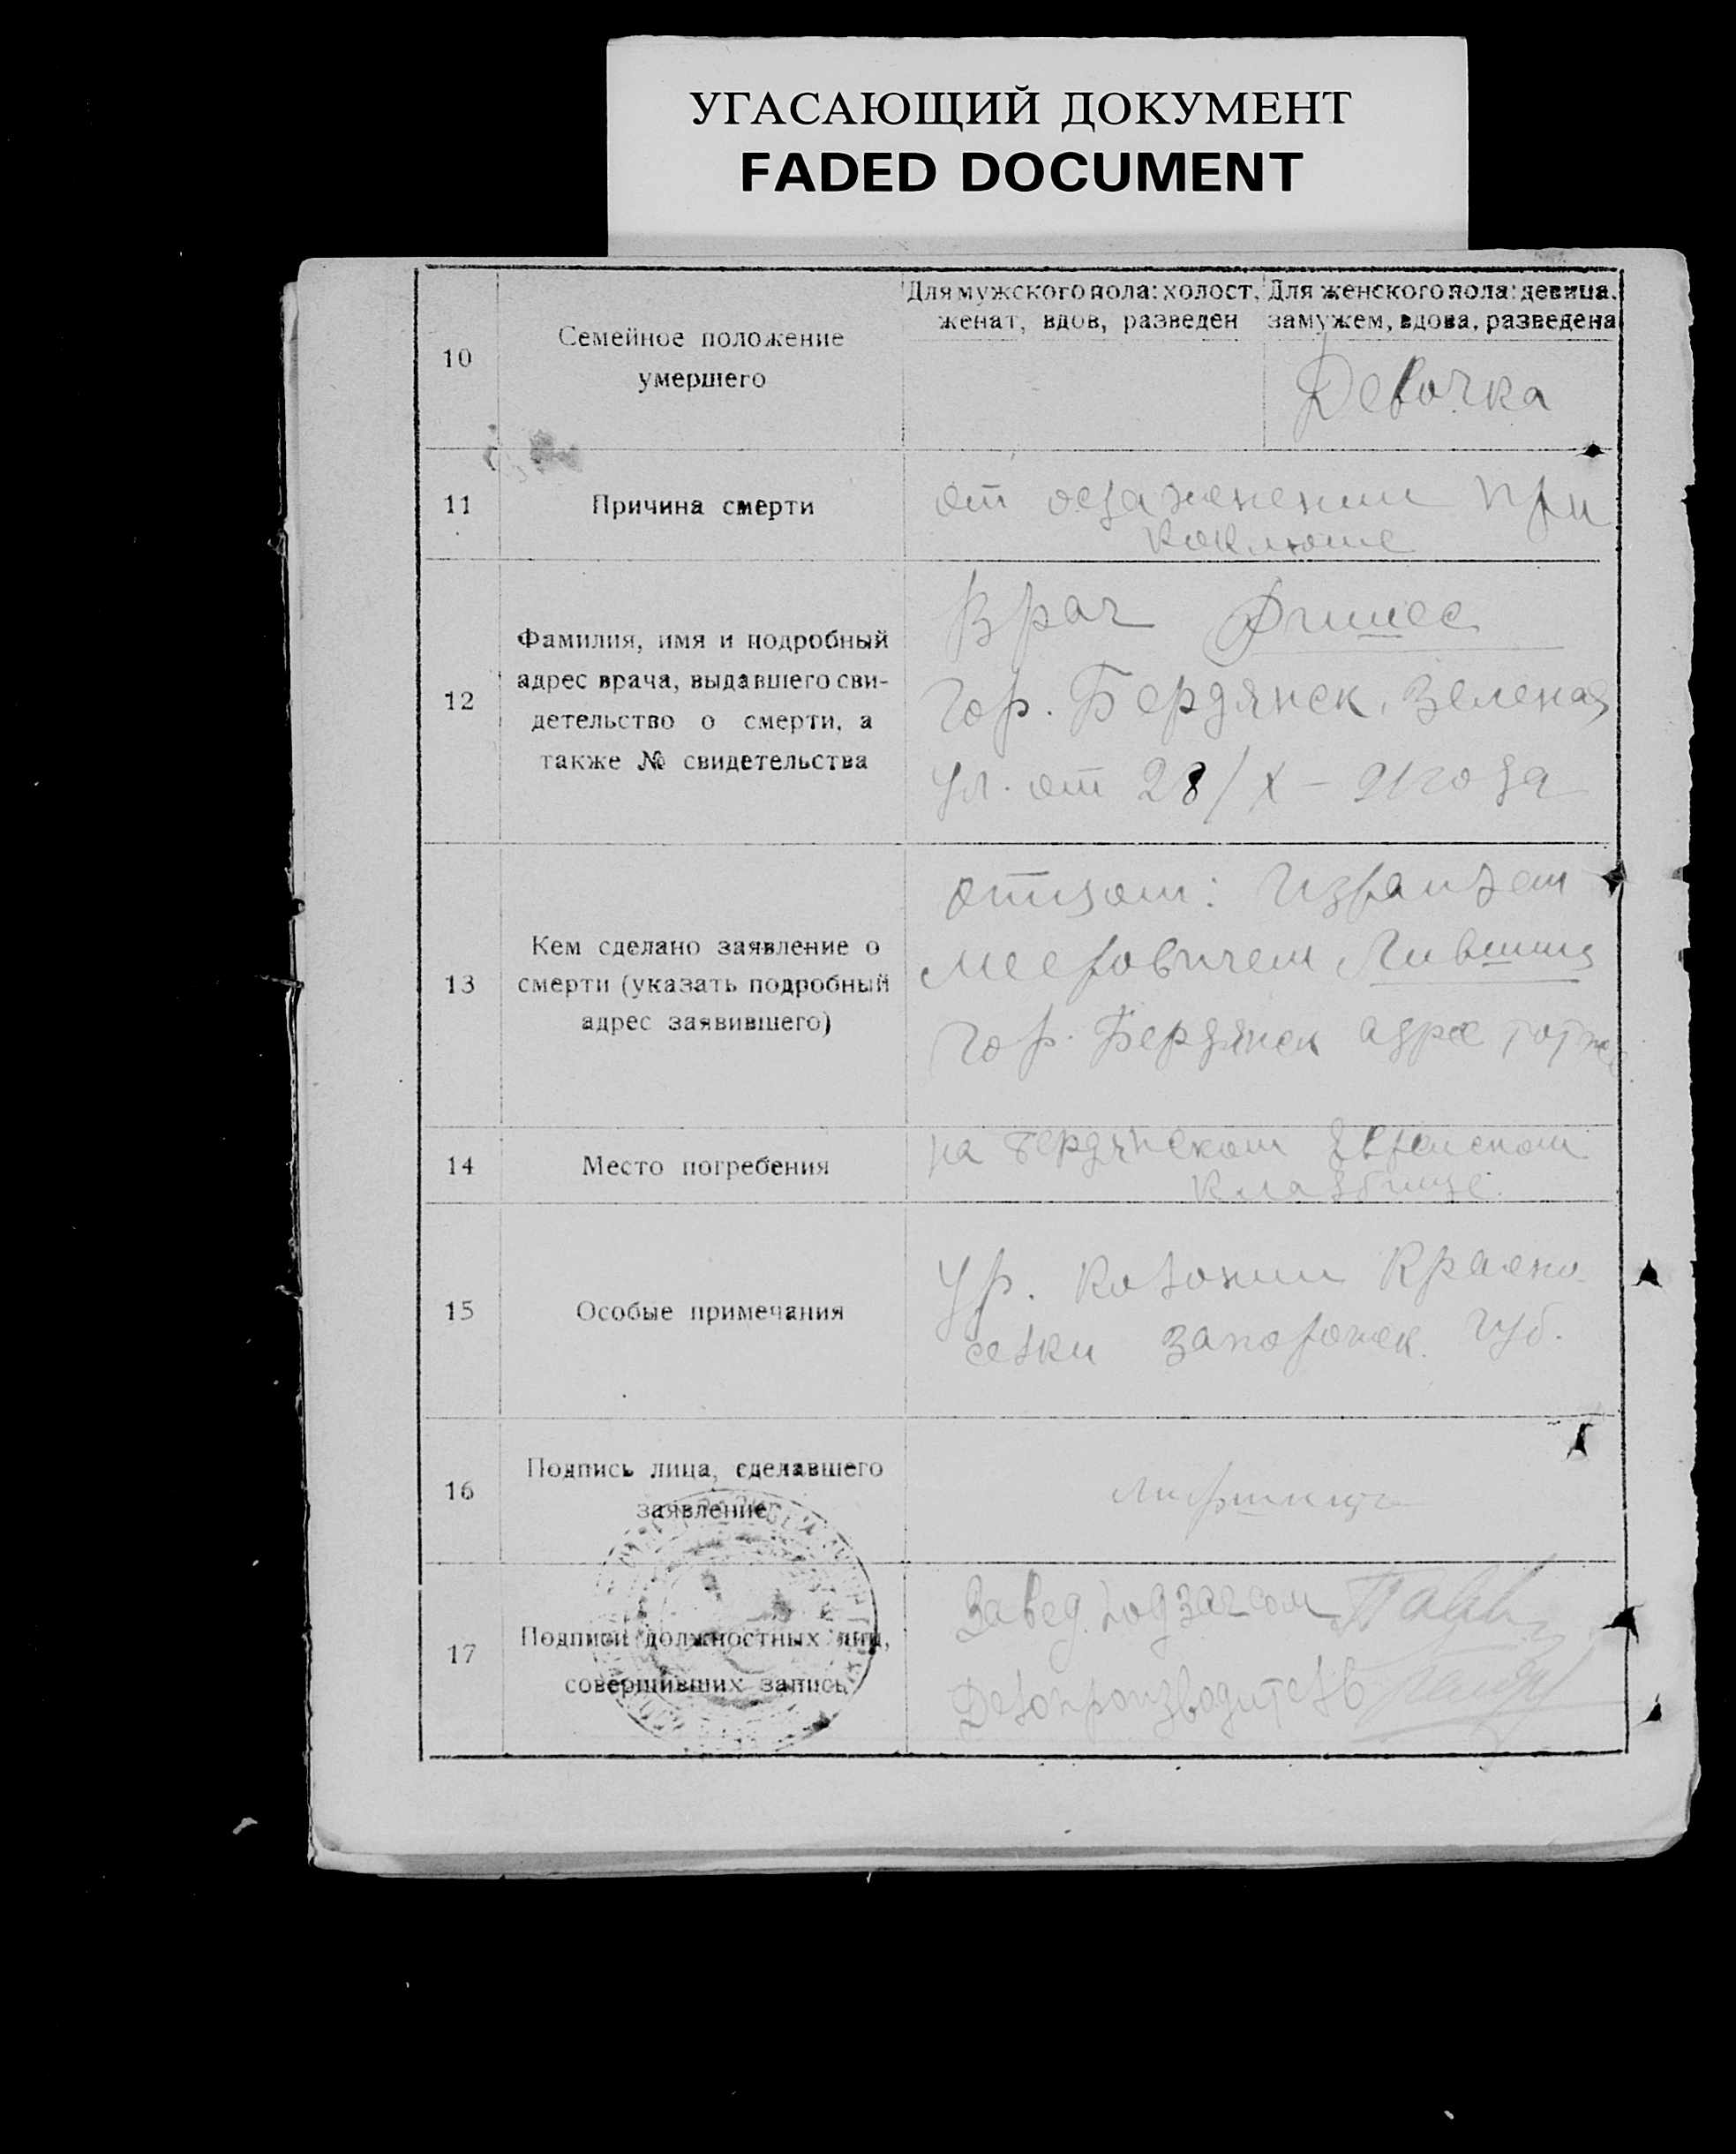 УГАСАЮЩИЙ ДОКУМЕНТ
FADED DOCUMENT
10
Семейное положение
умершего
Для мужского пола: холост,
женат, вдов, разведен
Для женского пола: девица,
замужем, вдова, разведена
Девочка
11
Причина смерти
от осложнении при
коклюше
12
Фамилия, имя и подробный
адрес врача, выдавшего сви-
детельство о смерти, а
также № свидетельства
Врач
гор. Бердянск, Зеленая
ул. от 28/X – 21 года
13
Кем сделано заявление о
смерти (указать подробный
адрес заявившего)
отцом: Израилем
Мееровичем Лившиц
гор. Бердянск адрес тот же
14
Место погребения
на Бердянском Еврейском
кладбище.
15
Особые примечания
Ур. колонии Красно
селки Запорожск. губ.
16
Подпись лица, сделавшего
заявление
17
Подписи должностных лиц,
совершивших запись
Завед. подзагсом
Делопроизводитель